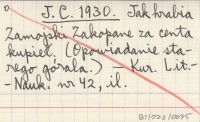 J. C. 1930. Jak hrabia
Zamojski Zakopane za centa
kupił. (Opowiadanie sta-
rego górala.) — Kur. Lit.-
-Nauk. nr 42, il.
BT/022/0095